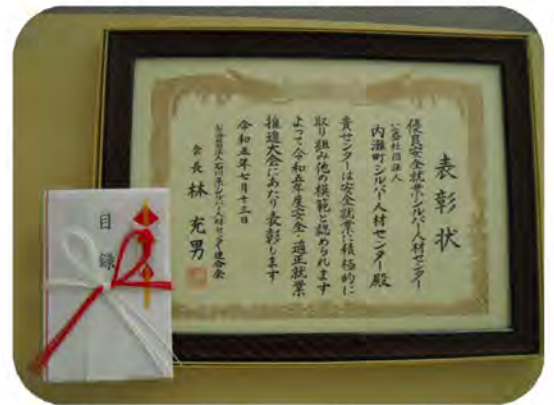 表彰状
優良安全就業シルバー人材センター
公益社団法人
内灘町シルバー人材センター殿
貴センターは安全就業に積極的に
取り組み他の模範と認められます
よって令和五年度安全・適正就業
推進大会にあたり表彰します
令和五年七月十三日
公益社団法人石川県シルバー人材センター連合会
会長 林 充男
目録